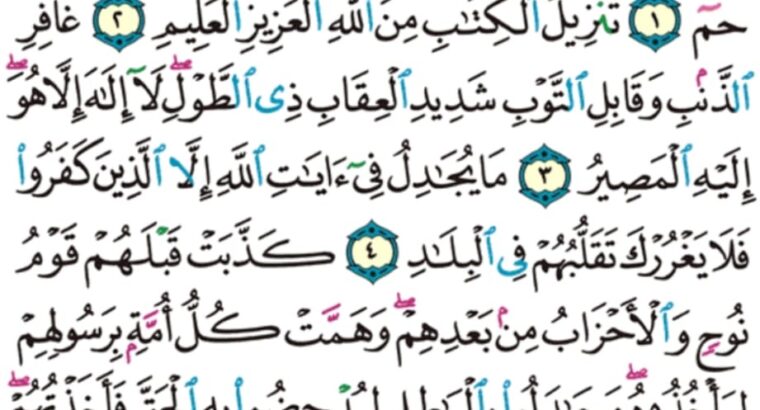 حمٓ ١ تَنزِيلُ ٱلْكِتَٰبِ مِنَ ٱللَّهِ ٱلْعَزِيزِ ٱلْعَلِيمِ ٢ غَافِرِ
ٱلذَّنۢبِ وَقَابِلِ ٱلتَّوْبِ شَدِيدِ ٱلْعِقَابِ ذِى ٱلطَّوْلِۖ لَآ إِلَٰهَ إِلَّا هُوَۖ
إِلَيْهِ ٱلْمَصِيرُ ٣ مَا يُجَٰدِلُ فِىٓ ءَايَٰتِ ٱللَّهِ إِلَّا ٱلَّذِينَ كَفَرُوا۟
فَلَا يَغْرُرْكَ تَقَلُّبُهُمْ فِى ٱلْبِلَٰدِ ٤ كَذَّبَتْ قَبْلَهُمْ قَوْمُ
نُوحٍ وَٱلْأَحْزَابُ مِنۢ بَعْدِهِمْۖ وَهَمَّتْ كُلُّ أُمَّةٍۭ بِرَسُولِهِمْ
لِيَأْخُذُوهُۖ وَجَٰدَلُوا۟ بِٱلْبَٰطِلِ لِيُدْحِضُوا۟ بِهِ ٱلْحَقَّ فَأَخَذْتُهُمْۖ